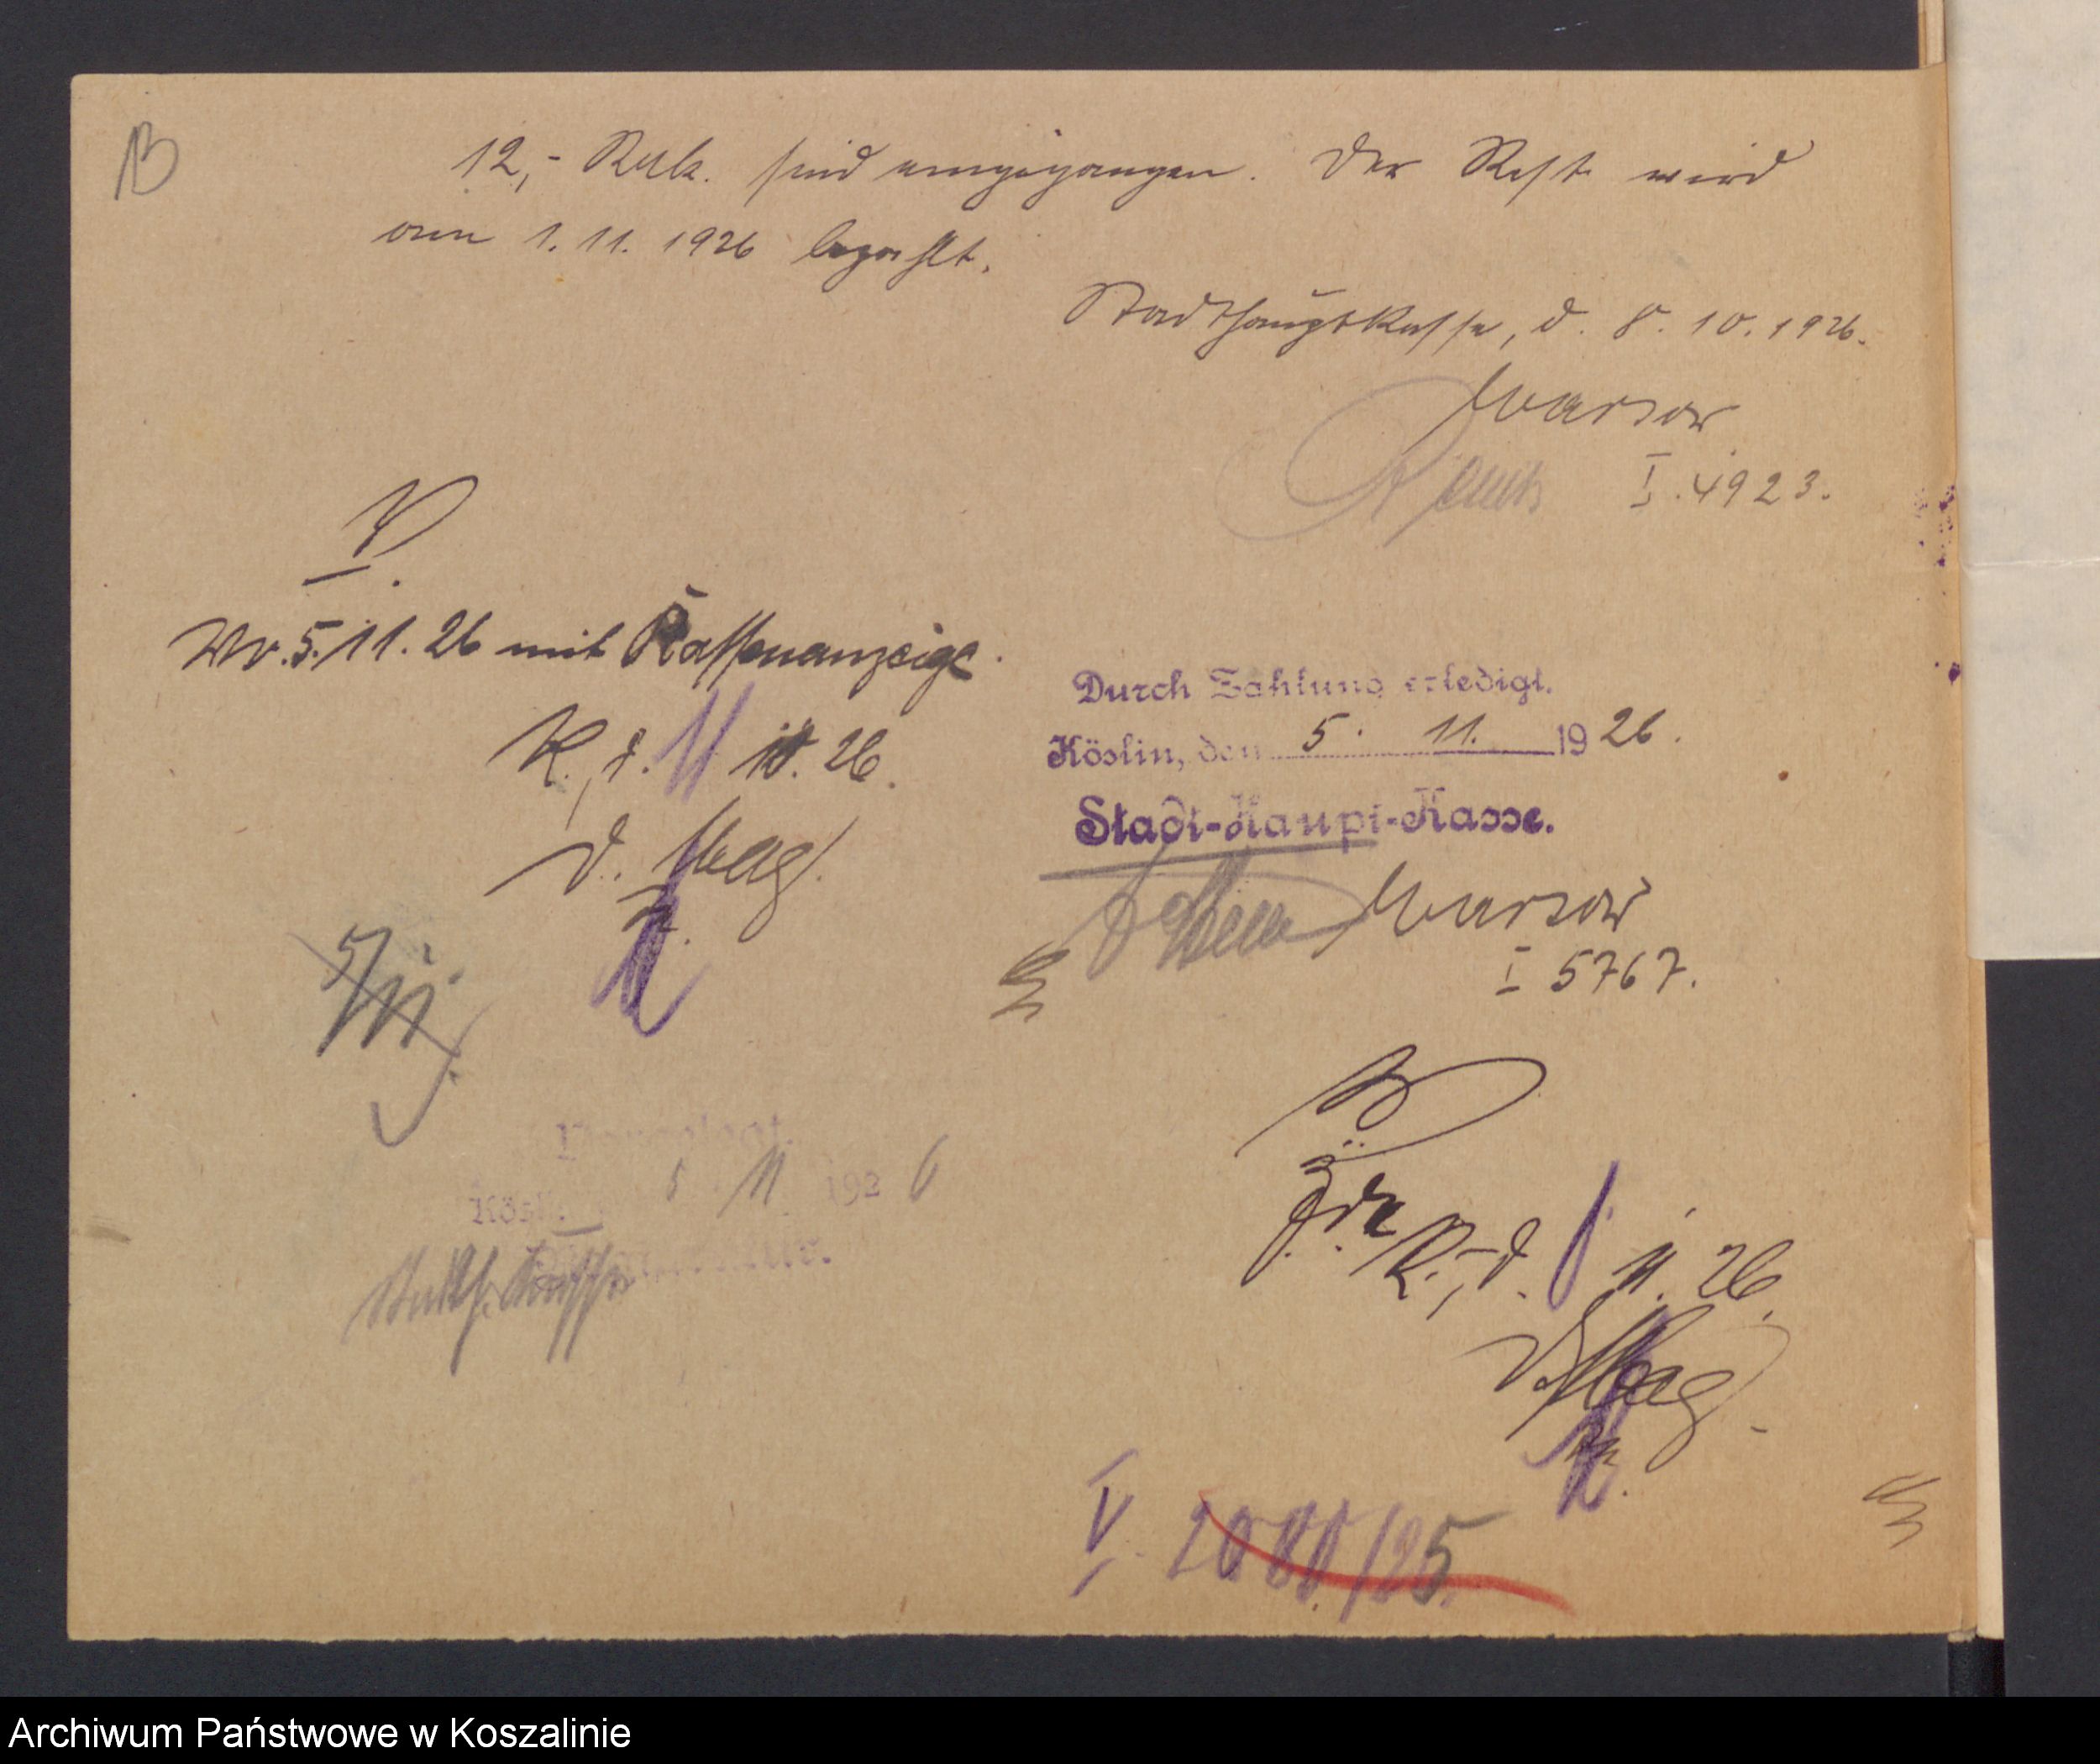 B
12,- Rmk. sind eingegangen. Der Rest wird
am 1. 11. 1926 bezahlt.
Stadthauptkasse, d. 8. 10. 1926.
Warsow
I. 4923.
V.
Wv. 5. 11. 26 mit Kassenanzeige.
K., d. 11 10. 26.
D. Mag.
Durch Zahlung erledigt.
Köslin, den 5. 11. 1926.
Stadt-Haupt-Kasse.
Warsow
I 5767.
5/11.
Vorgelegt.
Kösl 5 11 1926
Z. d. A.
K., d. 11. 26.
D. Mag.
V. 2080/25.
Archiwum Państwowe w Koszalinie